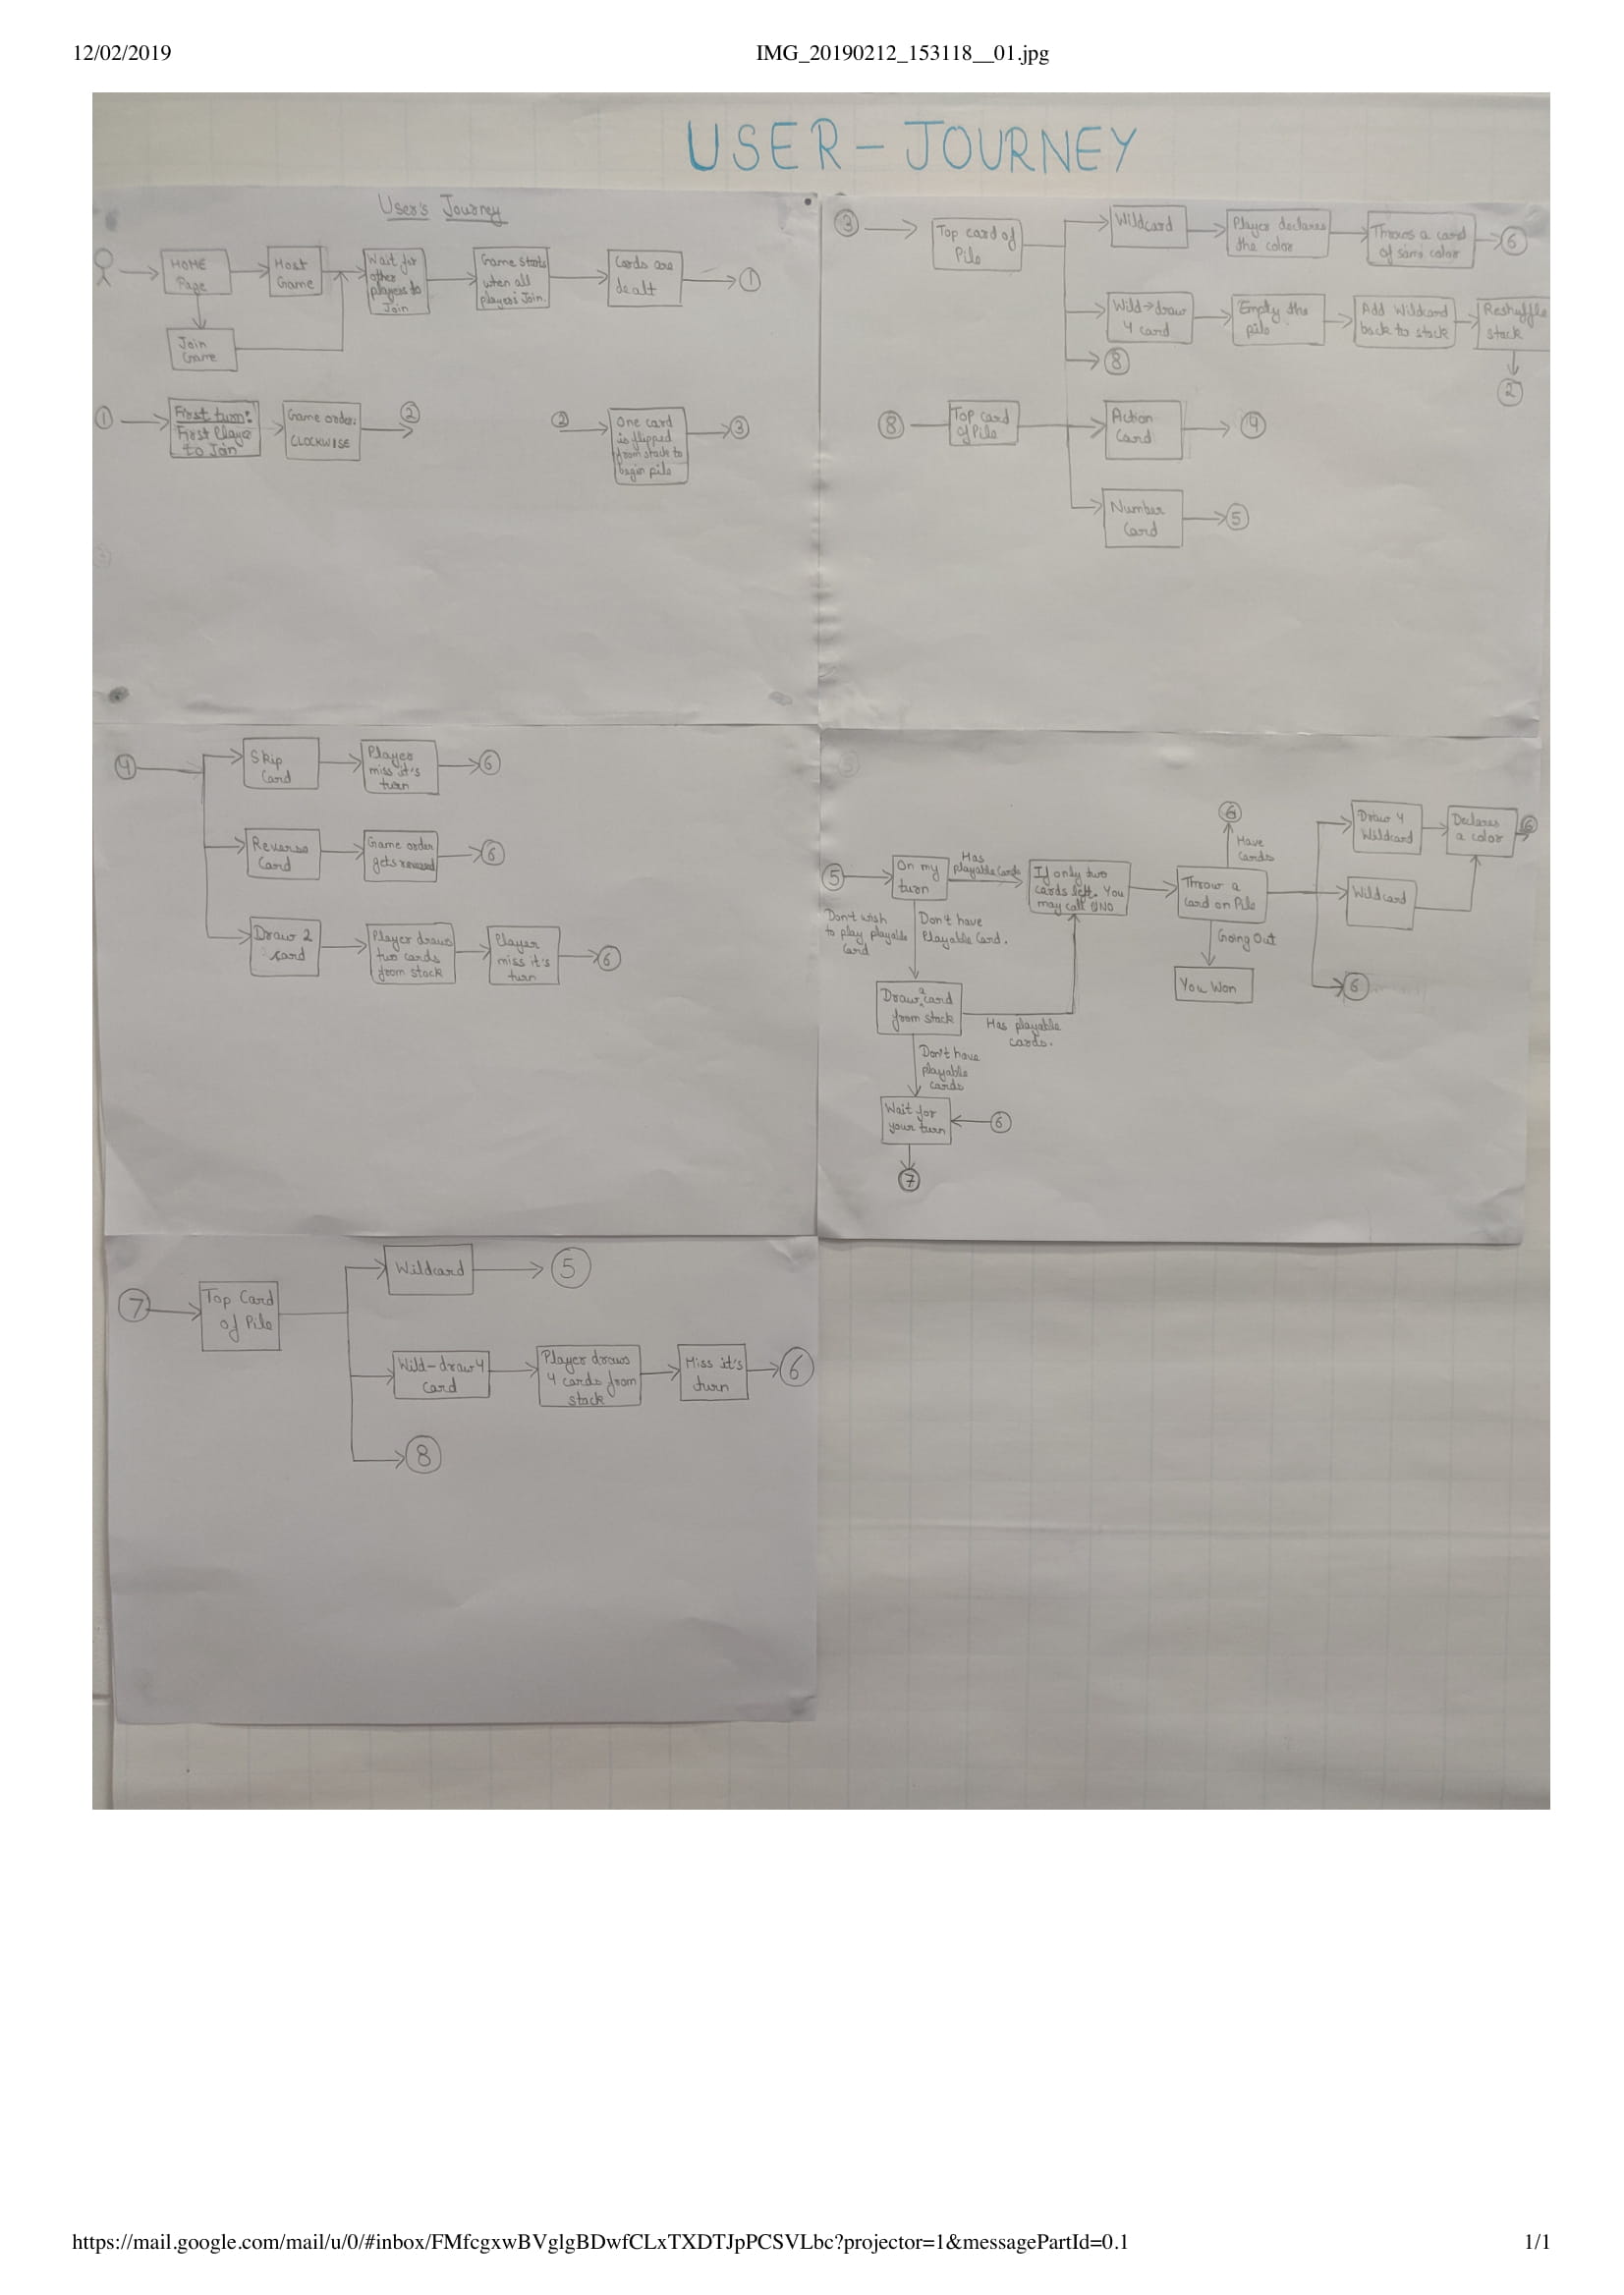 12/02/2019
IMG_20190212_153118__01.jpg
USER-JOURNEY
User's Journey
HOME
Page
Host
Game
Wait for
other
players to
Join
Game starts
when all
players Join.
Cards are
dealt
1
Join
Game
1
First turn:
First Player
to Join
Game order:
CLOCKWISE
2
2
One card
is flipped
from stack to
begin pile
3
3
Top card of
Pile
Wildcard
Player declares
the color
Throws a card
of same color
6
Wild→draw
4 card
Empty the
pile
Add Wildcard
back to stack
Reshuffle
stack
2
8
8
Top card
of Pile
Action
Card
4
Number
Card
5
4
Skip
Card
Player
miss it's
turn
6
Reverse
Card
Game order
gets reversed
6
Draw 2
card
Player draws
two cards
from stack
Player
miss it's
turn
6
5
On my
turn
Has
playable cards
If only two
cards left. You
may call UNO
Throw a
card on Pile
Have
cards
6
Going Out
You Won
Draw 4
Wildcard
Declares
a color
6
Wildcard
6
Don't wish
to play playable
card
Don't have
Playable Card.
Draw a card
from stack
Has playable
cards.
Don't have
playable
cards
Wait for
your turn
6
7
7
Top Card
of Pile
Wildcard
5
Wild-draw 4
Card
Player draws
4 cards from
stack
Miss it's
turn
6
8
https://mail.google.com/mail/u/0/#inbox/FMfcgxwBVglgBDwfCLxTXDTJpPCSVLbc?projector=1&messagePartId=0.1
1/1